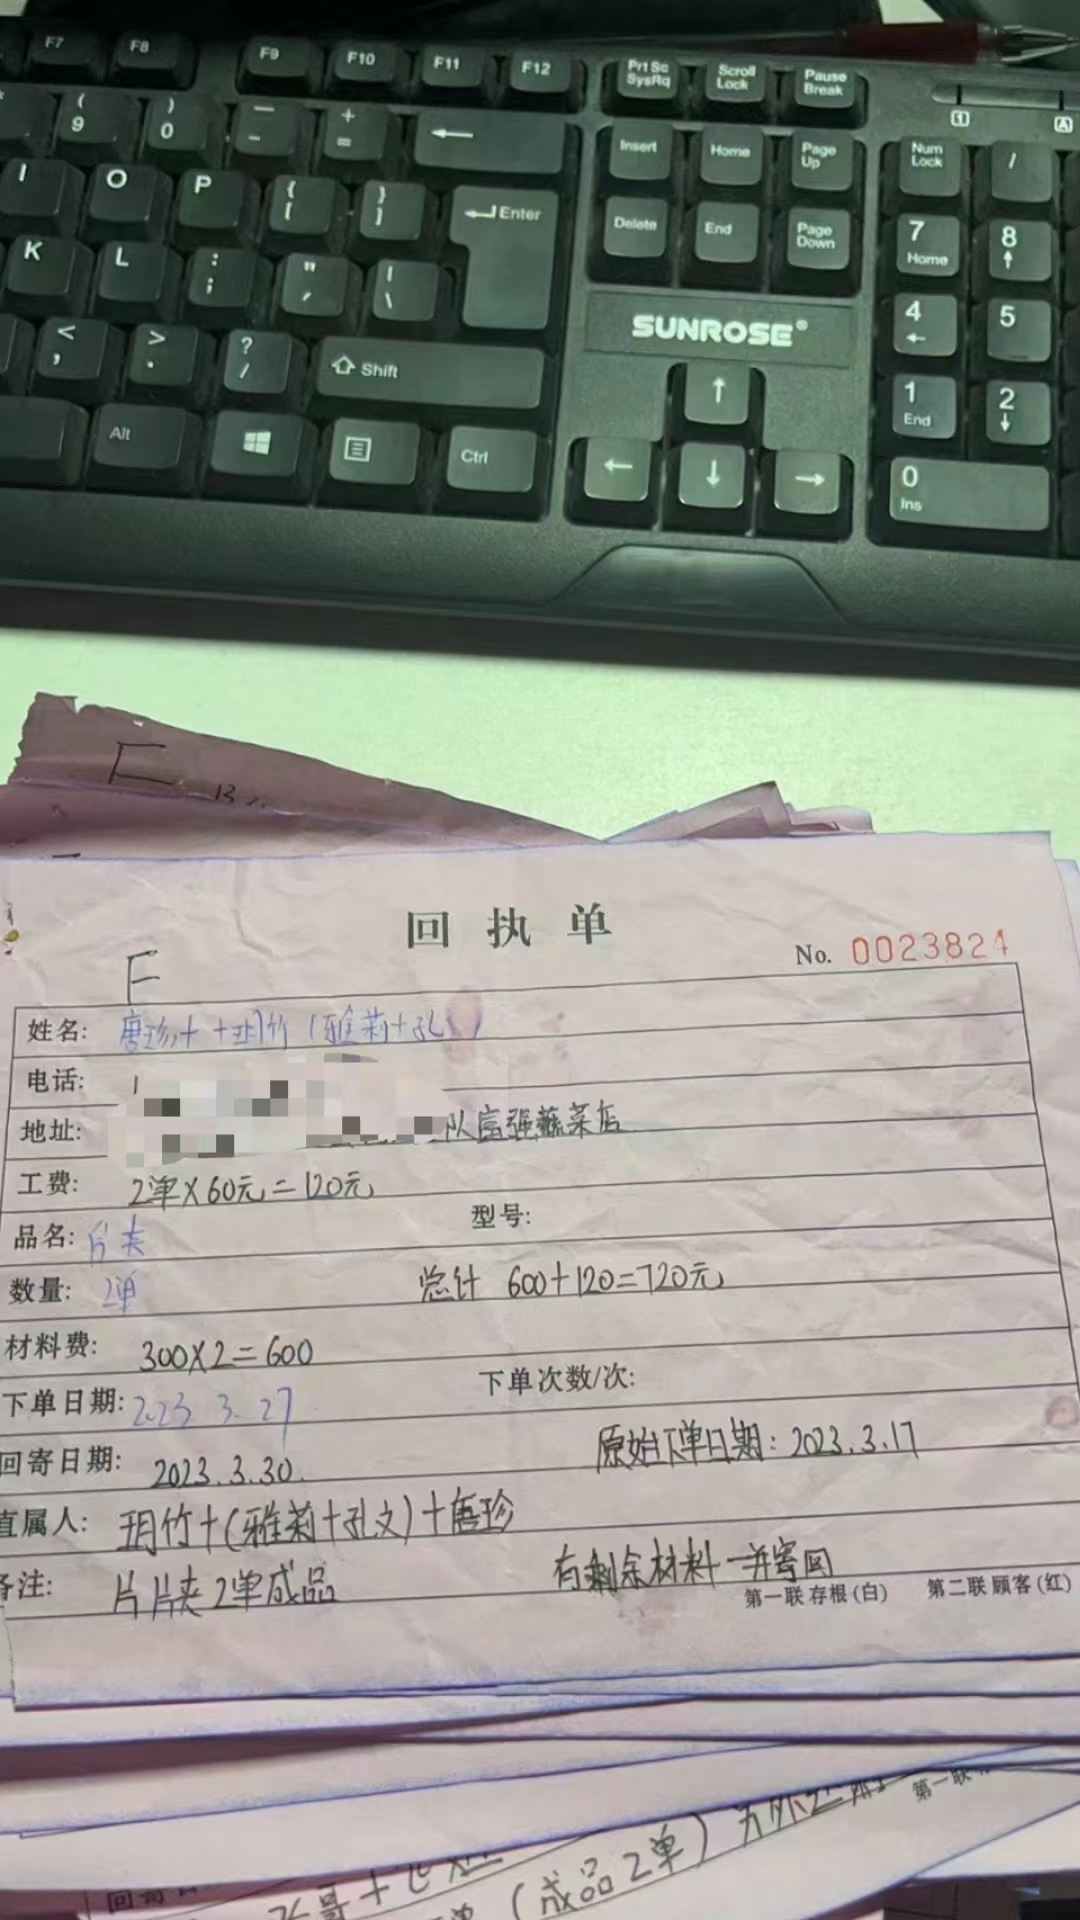 F7 F8 F9 F10 F11 F12 Prt Sc SysRq Scroll Lock Pause Break
( 9 ) 0 — - + = ← Insert Home Page Up Num Lock /
I O P { [ } ] Enter Delete End Page Down 7 Home 8 ↑
K L : ; " ' | \ 4 ← 5
SUNROSE®
< , > . ? / Shift ↑ 1 End 2 ↓
Alt Ctrl ← ↓ → 0 Ins
F
回执单
No. 0023824
F
姓名: 唐珍+ +玥竹(雅莉+孔
电话: 1
地址: 队富强蔬菜店
工费: 2单×60元=120元
品名: 片夹 型号:
数量: 2单 总计 600+120=720元
材料费: 300×2=600
下单日期: 2023 3.27 下单次数/次:
回寄日期: 2023.3.30. 原始下单日期: 2023.3.17
直属人: 玥竹+(雅莉+孔文)+唐珍
备注: 片片夹2单成品 有剩余材料一并寄回
第一联 存根(白) 第二联 顾客(红)
第一联
(成品2单)